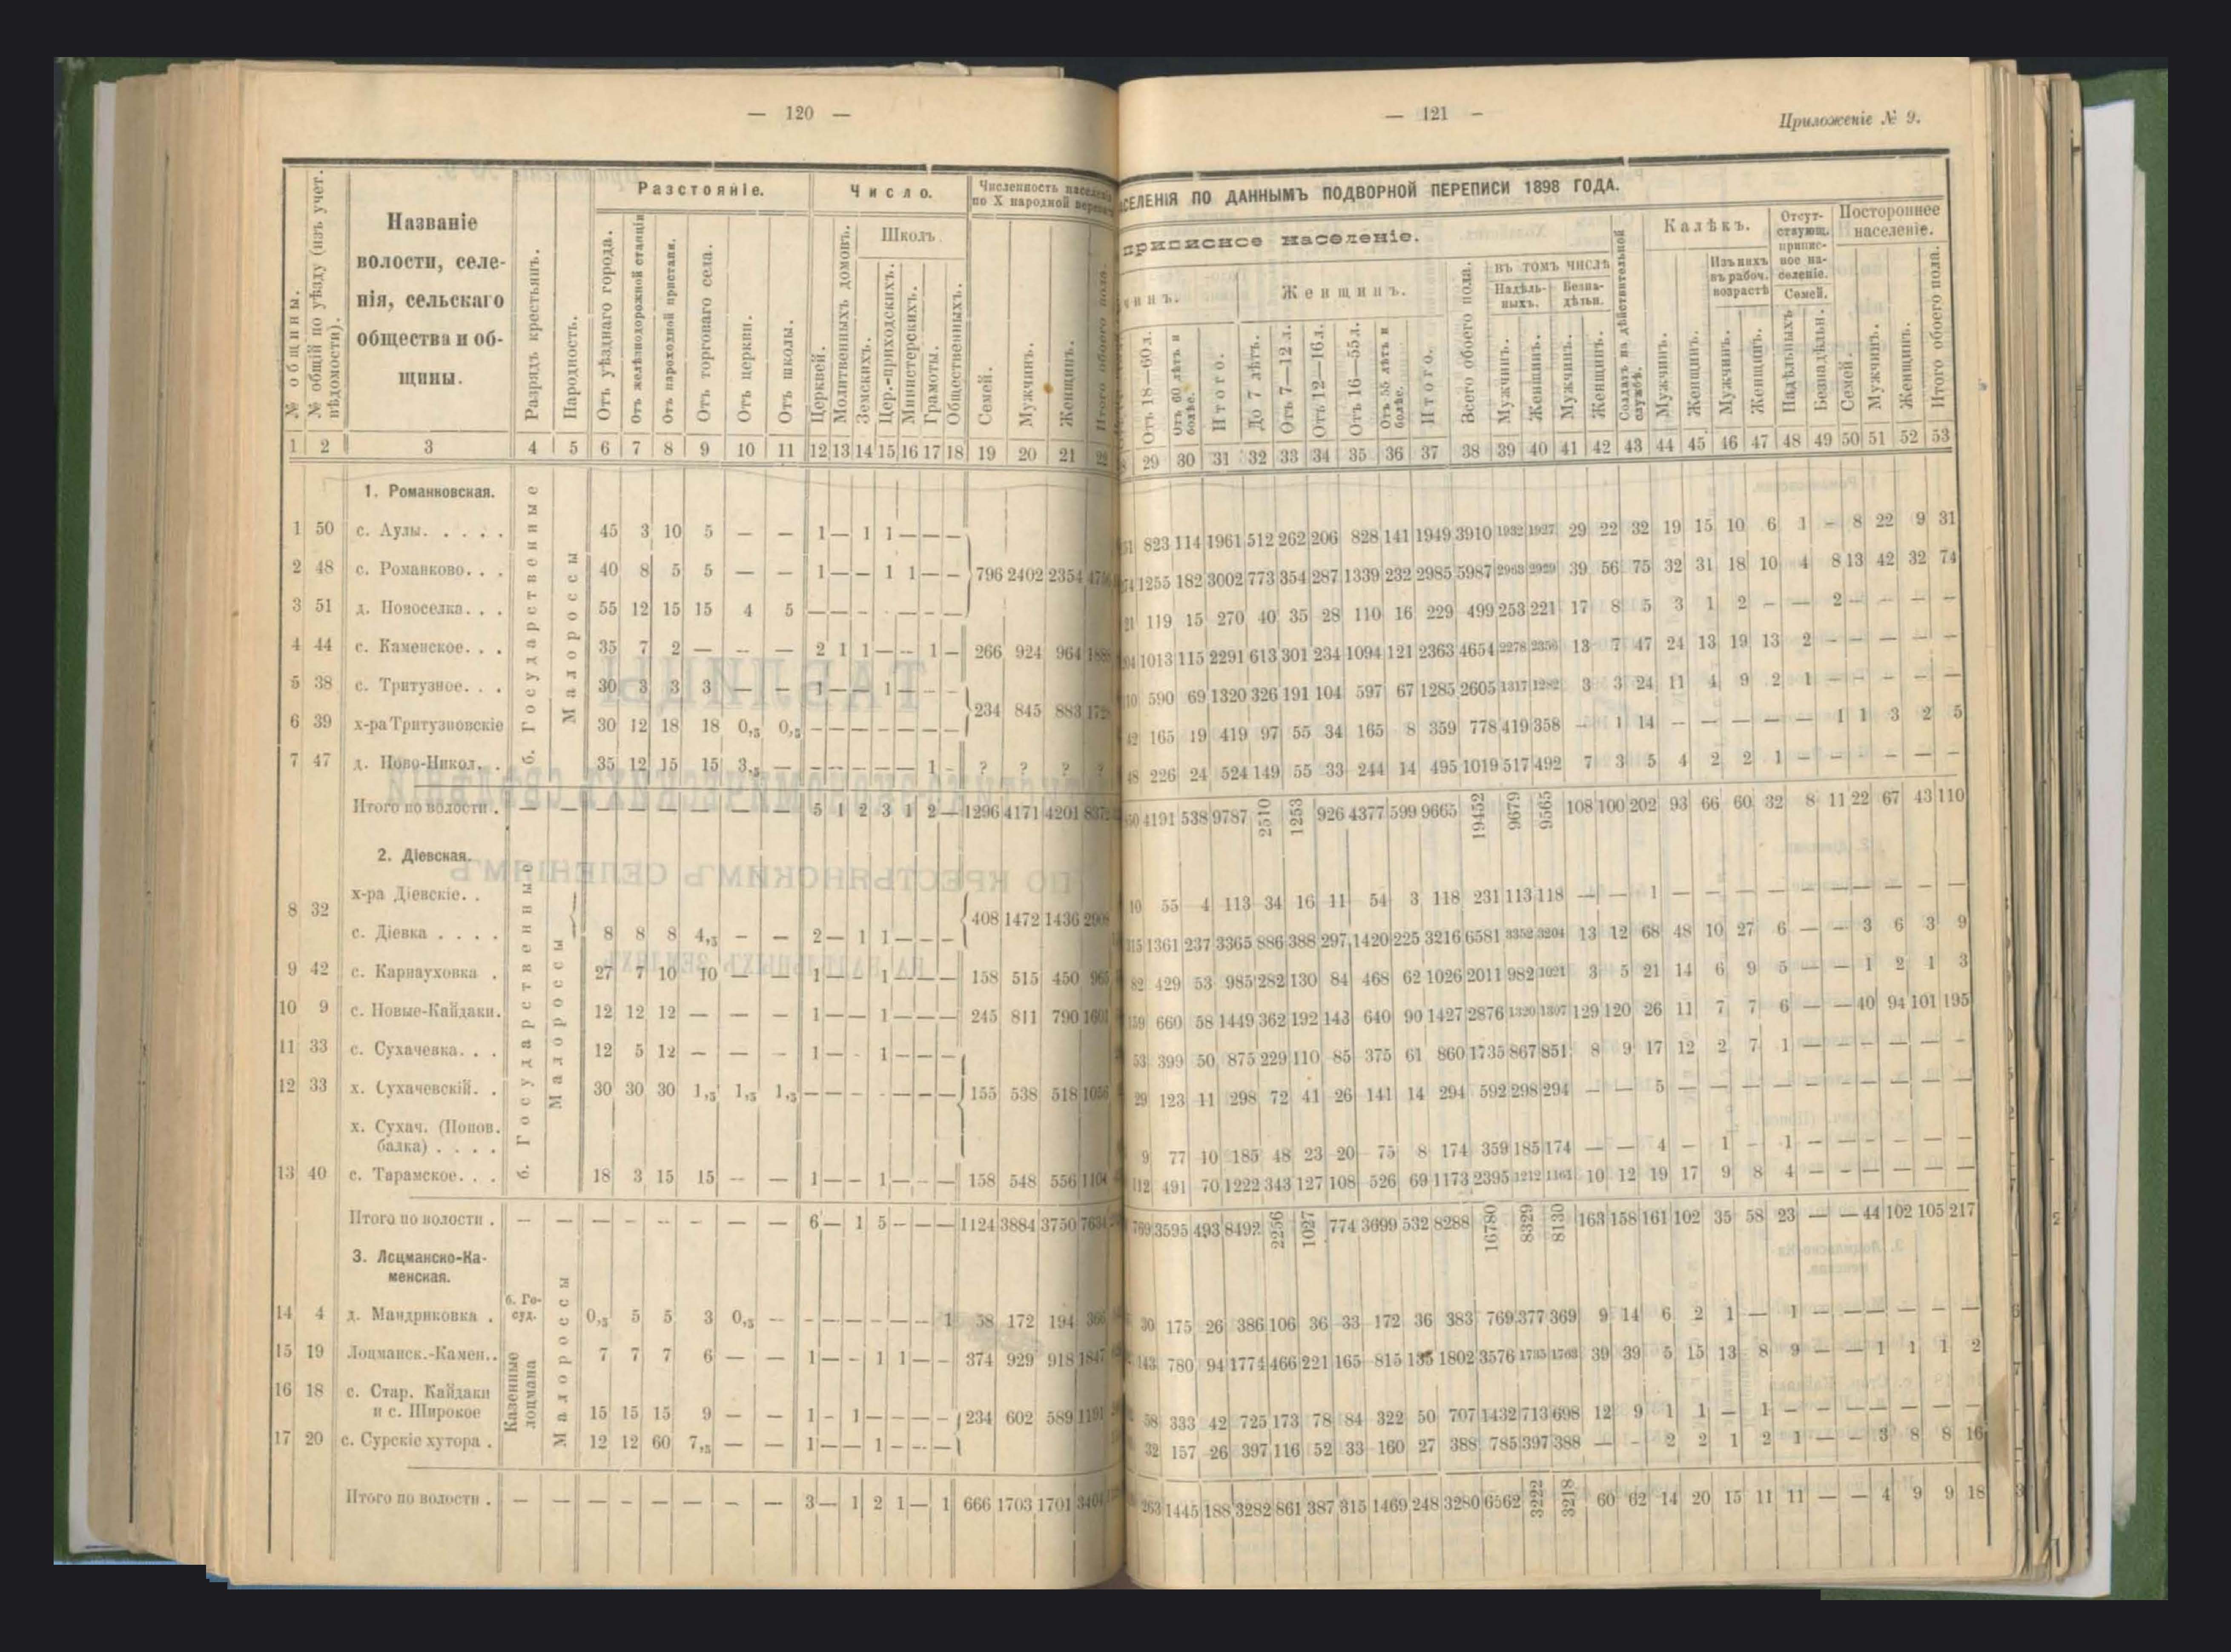 — 120 —
Разстояніе.
Число.
Численность населенія
по X народной переписи
№ общины.
№ общій по уѣзду (изъ учет. вѣдомости).
Названіе
волости, селе-
нія, сельскаго
общества и об-
щины.
Разрядъ крестьянъ.
Народность.
Отъ уѣзднаго города.
Отъ желѣзнодорожной станціи
Отъ пароходной пристани.
Отъ торговаго села.
Отъ церкви.
Отъ школы.
Церквей.
Молитвенныхъ домовъ.
Школъ
Земскихъ.
Цер.-приходскихъ.
Министерскихъ.
Грамоты.
Общественныхъ.
Семей.
Мужчинъ.
Женщинъ.
Итого обоего пола.
1 2 3 4 5 6 7 8 9 10 11 12 13 14 15 16 17 18 19 20 21 22
1. Романковская.
б. Государственные
Малороссы
1 50 с. Аулы. . . . . 45 3 10 5 — — 1 — 1 1 — — —
2 48 с. Романково. . . 40 8 5 5 — — 1 — — 1 1 — — 796 2402 2354
3 51 д. Новоселка. . . 55 12 15 15 4 5 — — — - — — —
4 44 с. Каменское. . . 35 7 2 — — — 2 1 1 — — 1 — 266 924 964 1888
5 38 с. Тритузное. . . 30 3 3 3 — — 1 — — 1 — — —
6 39 х-ра Тритузновскіе 30 12 18 18 0,5 0,5 — — — — — — — 234 845 883
7 47 д. Ново-Никол. . 35 12 15 15 3,5 — — — — — — 1 - ? ? ? ?
Итого по волости . — — — — — — — — 5 1 2 3 1 2 — 1296 4171 4201
2. Діевская.
б. Государственные
Малороссы
х-ра Діевскіе. .
8 32 408 1472 1436
с. Діевка . . . . 8 8 8 4,5 — — 2 — 1 1 — — —
9 42 с. Карнауховка . 27 7 10 10 — — 1 — — 1 — — — 158 515 450 965
10 9 с. Новые-Кайдаки. 12 12 12 — — — 1 — — 1 — — — 245 811 790 1601
11 33 с. Сухачевка. . . 12 5 12 — — — 1 — - 1 — — —
12 33 х. Сухачевскій. . 30 30 30 1,5 1,5 1,5 — — — - — — — 155 538 518 1056
х. Сухач. (Попов.
балка) . . . .
13 40 с. Тарамское. . . 18 3 15 15 — — 1 — — 1 — — — 158 548 556 1104
Итого по волости . — — — — — — — — 6 — 1 5 — — — 1124 3884 3750 7634
3. Лоцманско-Ка-
менская.
б. Го-
суд.
Казенные
лоцмана
Малороссы
14 4 д. Мандриковка . 0,5 5 5 3 0,5 — — — — — — — 1 58 172 194 366
15 19 Лоцманск.-Камен.. 7 7 7 6 — — 1 — - 1 1 — — 374 929 918 1847
16 18 с. Стар. Кайдаки
и с. Широкое 15 15 15 9 — — 1 - 1 — — — — 234 602 589 1191
17 20 с. Сурскіе хутора . 12 12 60 7,5 — — 1 — — 1 — — —
Итого по волости . — — — — — — — — 3 — 1 2 1 — 1 666 1703 1701 3404
— 121 —
Приложеніе № 9.
СЕЛЕНІЯ ПО ДАННЫМЪ ПОДВОРНОЙ ПЕРЕПИСИ 1898 ГОДА.
приписное населеніе.
чинъ.
Отъ 18—60 л.
Отъ 60 лѣтъ и болѣе.
Итого.
Женщинъ.
До 7 лѣтъ.
Отъ 7—12 л.
Отъ 12—16 л.
Отъ 16—55 л.
Отъ 55 лѣтъ и болѣе.
Итого.
Всего обоего пола.
въ томъ числѣ
Надѣль-
ныхъ.
Безна-
дѣльн.
Мужчинъ.
Женщинъ.
Мужчинъ.
Женщинъ.
Солдатъ на дѣйствительной службѣ.
Калѣкъ.
Мужчинъ.
Женщинъ.
Изъ нихъ
въ рабоч.
возрастѣ
Мужчинъ.
Женщинъ.
Отсут-
ствующ.
припис-
ное на-
селеніе.
Семей.
Надѣльныхъ
Безнадѣльн.
Постороннее
населеніе.
Семей.
Мужчинъ.
Женщинъ.
Итого обоего пола.
29 30 31 32 33 34 35 36 37 38 39 40 41 42 43 44 45 46 47 48 49 50 51 52 53
823 114 1961 512 262 206 828 141 1949 3910 1932 1927 29 22 32 19 15 10 6 1 — 8 22 9 31
1255 182 3002 773 354 287 1339 232 2985 5987 2963 2929 39 56 75 32 31 18 10 4 8 13 42 32 74
119 15 270 40 35 28 110 16 229 499 253 221 17 8 5 3 1 2 — — 2 — — — —
1013 115 2291 613 301 234 1094 121 2363 4654 2278 2356 13 7 47 24 13 19 13 2 — — — — —
590 69 1320 326 191 104 597 67 1285 2605 1317 1282 3 3 24 11 4 9 2 1 — — — — —
42 165 19 419 97 55 34 165 8 359 778 419 358 — 1 14 — — — — — 1 1 3 2 5
48 226 24 524 149 55 33 244 14 495 1019 517 492 7 3 5 4 2 2 1 — — — — — —
4191 538 9787 2510 1253 926 4377 599 9665 19452 9679 9565 108 100 202 93 66 60 32 8 11 22 67 43 110
10 55 4 113 34 16 11 54 3 118 231 113 118 — — 1 — — — — — — — — — —
315 1361 237 3365 886 388 297 1420 225 3216 6581 3352 3204 13 12 68 48 10 27 6 — — 3 6 3 9
82 429 53 985 282 130 84 468 62 1026 2011 982 1021 3 5 21 14 6 9 5 — — 1 2 1 3
159 660 58 1449 362 192 143 640 90 1427 2876 1320 1307 129 120 26 11 7 7 6 — — 40 94 101 195
53 399 50 875 229 110 85 375 61 860 1735 867 851 8 9 17 12 2 7 1 — — — — — —
29 123 11 298 72 41 26 141 14 294 592 298 294 — — 5 — — — — — — — — — —
9 77 10 185 48 23 20 75 8 174 359 185 174 — — 4 — 1 - 1 — — — — — —
112 491 70 1222 343 127 108 526 69 1173 2395 1212 1161 10 12 19 17 9 8 4 — — — — — —
769 3595 493 8492 2256 1027 774 3699 532 8288 16780 8329 8130 163 158 161 102 35 58 23 — — 44 102 105 217
30 175 26 386 106 36 33 172 36 383 769 377 369 9 14 6 2 1 — 1 — — — — — —
143 780 94 1774 466 221 165 815 135 1802 3576 1735 1763 39 39 5 15 13 8 9 — — 1 1 1 2
58 333 42 725 173 78 84 322 50 707 1432 713 698 12 9 1 1 — 1 — — — — — — —
32 157 26 397 116 52 33 160 27 388 785 397 388 — - 2 2 1 2 1 — — 3 8 8 16
263 1445 188 3282 861 387 315 1469 248 3280 6562 3222 3218 60 62 14 20 15 11 11 — — 4 9 9 18